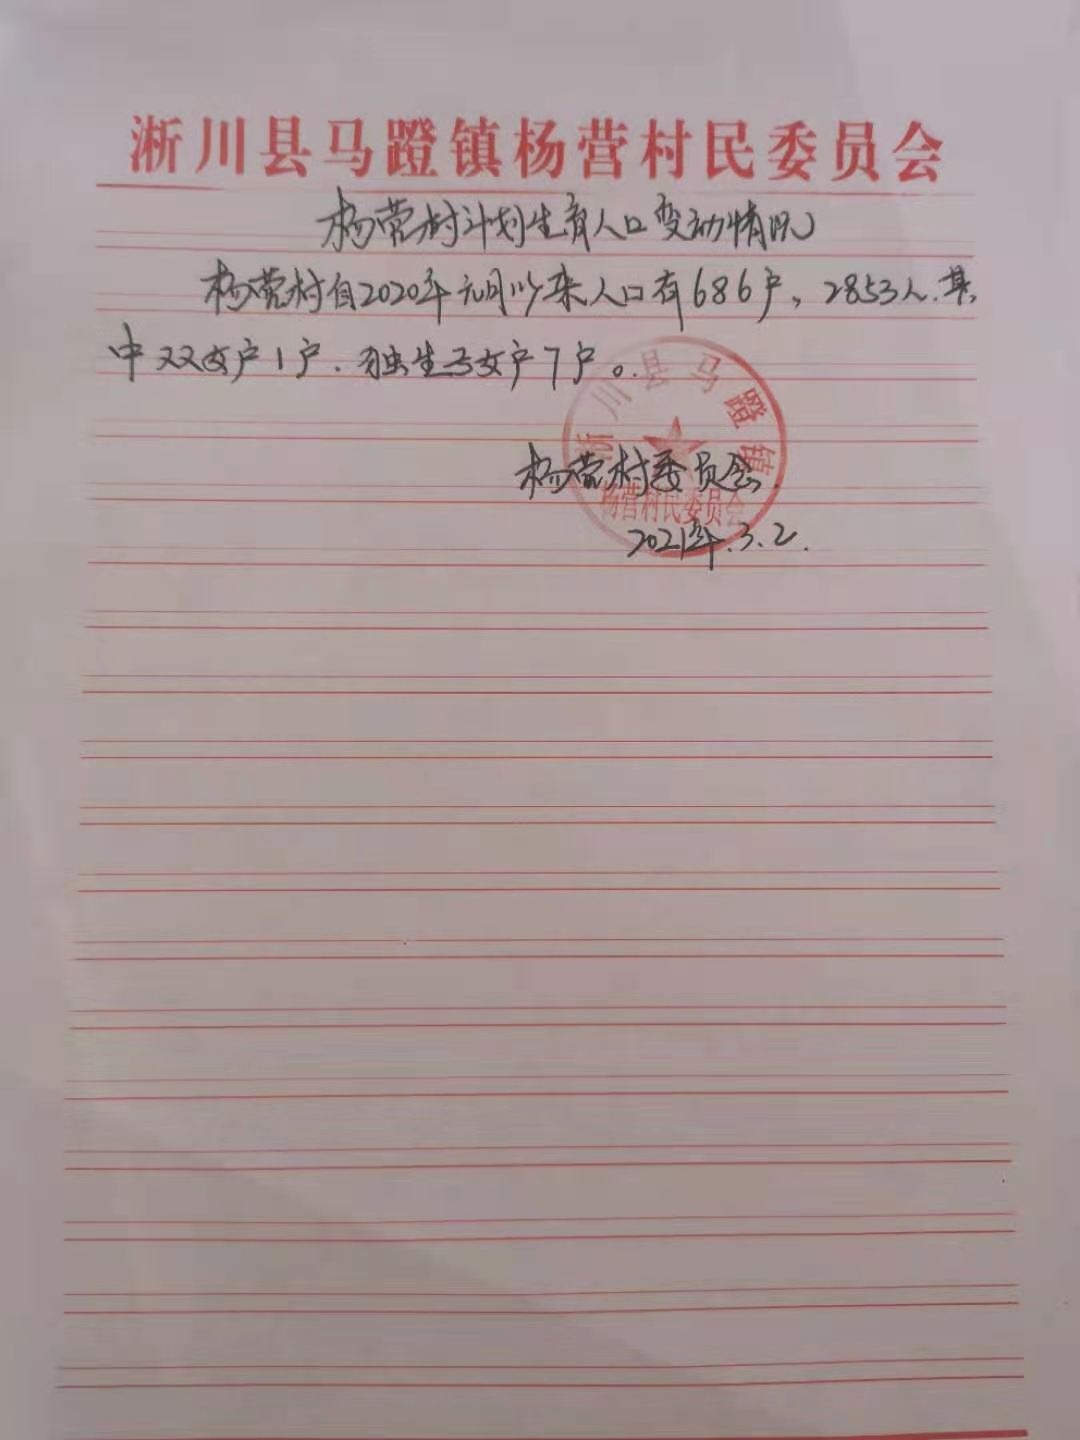 淅川县马蹬镇杨营村民委员会
杨营村计划生育人口变动情况
杨营村自2020年元月以来人口有686户，2853人.其
中双女户1户.独生子女户7户。
淅川县马蹬镇
杨营村委员会.
杨营村民委员会
2021年.3.2.